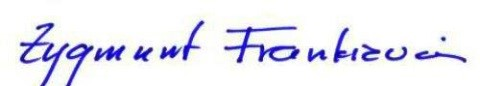 Zygmunt Frankiewicz